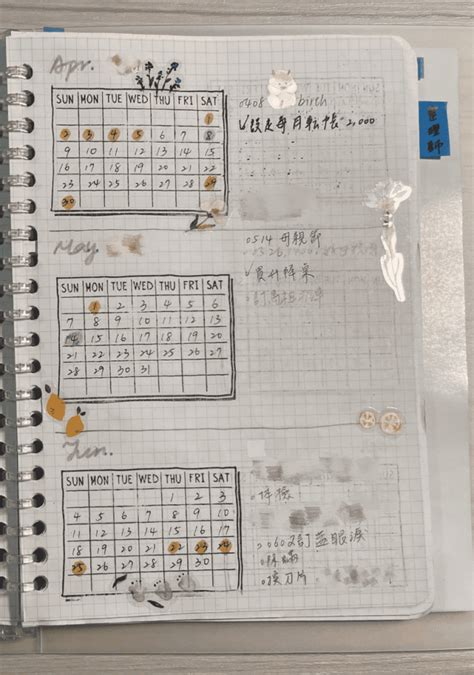 Apr.
SUN MON TUE WED THU FRI SAT
1
2 3 4 5 6 7 8
9 10 11 12 13 14 15
16 17 18 19 20 21 22
23 24 25 26 27 28 29
30
0408 birch
✓設定每月転帳 2,000
管理師
May
SUN MON TUE WED THU FRI SAT
1 2 3 4 5 6
7 8 9 10 11 12 13
14 15 16 17 18 19 20
21 22 23 24 25 26 27
28 29 30 31
0514 母親節
✓買升降桌
Jun.
SUN MON TUE WED THU FRI SAT
1 2 3
4 5 6 7 8 9 10
11 12 13 14 15 16 17
18 19 20 21 22 23 24
25 26 27 28 29 30
0602訂益眼淚
换刀片